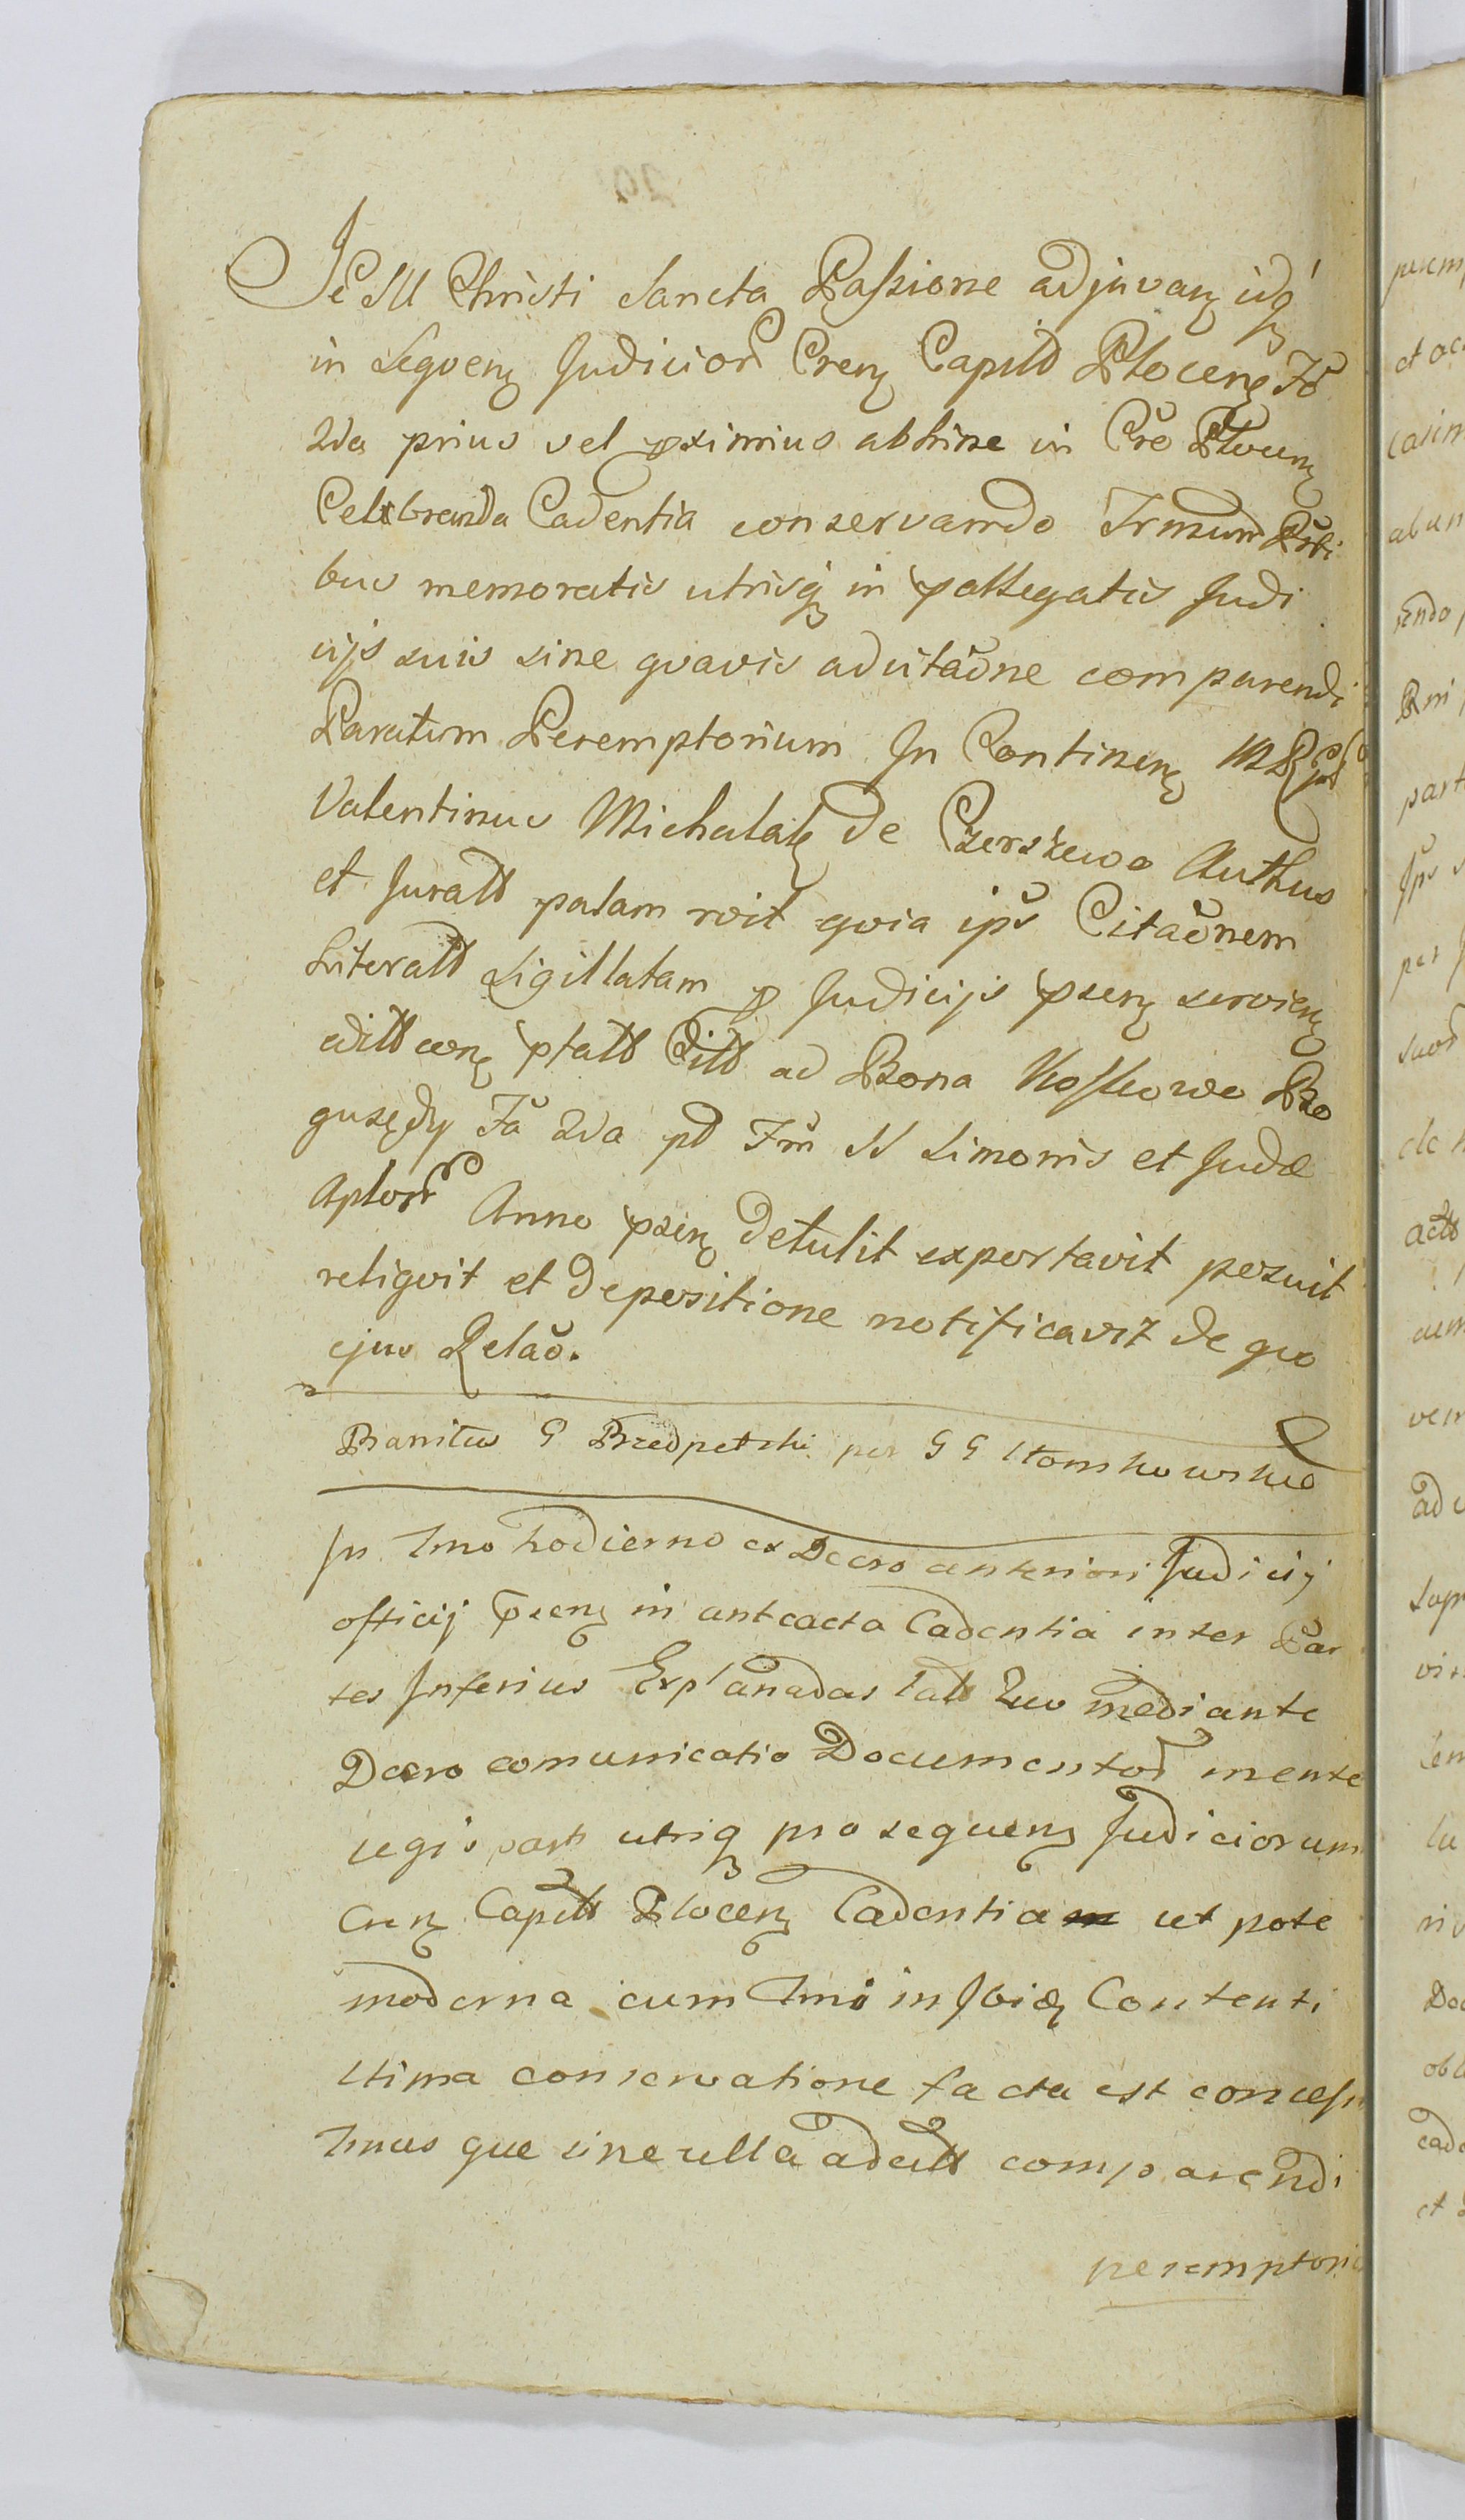 JESU Christi Sancta Passione adjuvan idq
in Seqven Judicior Cren Capitl Plocen Fr
2da prius vel pximius abhinc in Cre Plocen
Celebranda Cadentia conservando Trmum Prti
bus memoratis utrisq in pallegatis Judi
cijs suis sine qvavis adcitaõne comparendi
Paratum Peremptorium In Continen
Valentinus Michalak de Czerskewo Authus
et Juratt palam roit qvia ips Citaõnem
Literatt Sigillatam p Judicijs psen servien
editt con ptatt Citt ad Bona Kosskowo Bro
guzędy Fa 2da pt Fm SS Simonis et Judæ
Aplorr Anno psen detulit exportavit posuit
reliqvit et depositione notificavit de quo
ejus Relaõ.
Banitus G Brzedpetski per G G Słomkowskie
In Tmo hodierno ex Decro anteriori Judicij
officij psen in anteacta Cadentia inter Par
tes Inferius Explanadas latt Quo mediante
Decro comunicatio Documentor mente
legis parti utriq pro sequen Judiciorum
Cren Capitt Plocen Cadentia ut pote
moderna cum Tmi in Contenti
stima conservatione facta est concess
Tmus que sine ulla adcitt comparendi
peremptori